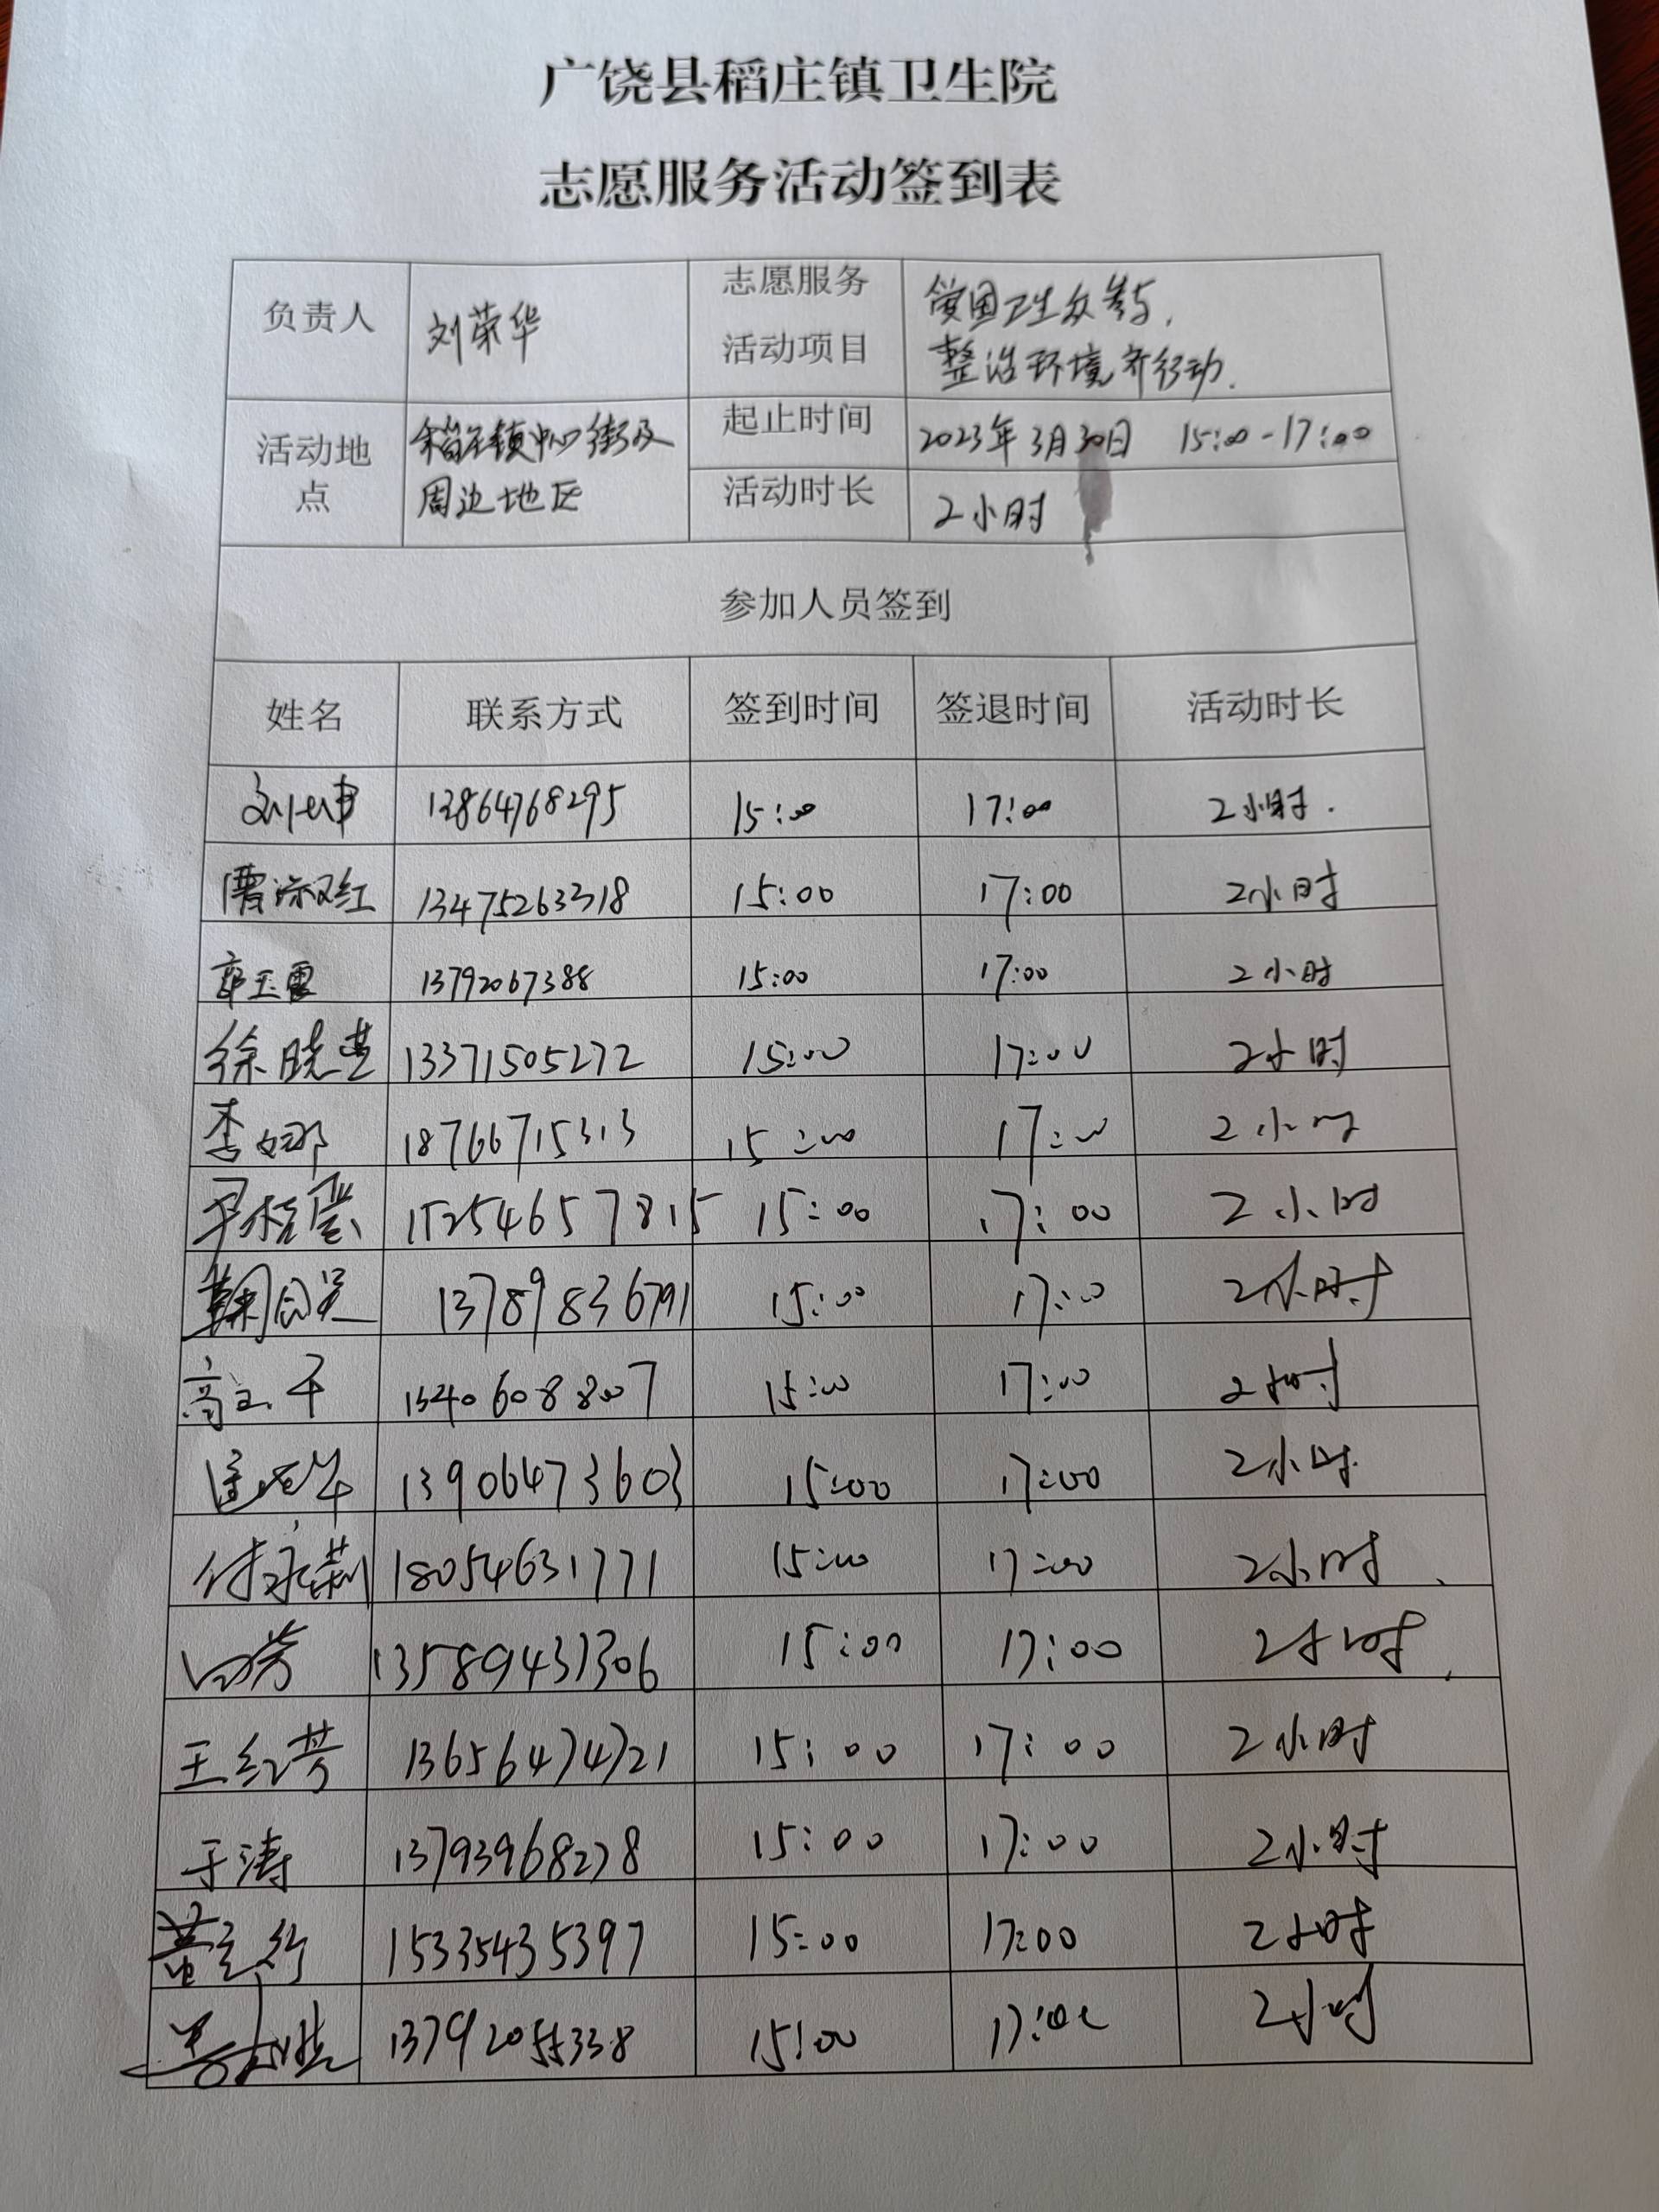 广饶县稻庄镇卫生院
志愿服务活动签到表
负责人 刘荣华 志愿服务活动项目 爱国卫生众参与,
整治环境齐行动.
活动地点 稻庄镇中心街及周边地区 起止时间 2023年3月30日 15:00-17:00
活动时长 2小时
参加人员签到
姓名 联系方式 签到时间 签退时间 活动时长
13864768295 15:00 17:00 2小时.
曹淑红 13475263318 15:00 17:00 2小时
郭玉雷 13792067388 15:00 17:00 2小时
徐晓莹 13371505272 15:00 17:00 2小时
李娜 18766715313 15:00 17:00 2小时
15254657815 15:00 17:00 2小时
13789836791 15:00 17:00 2小时
15:00 17:00 2小时
13906473603 15:00 17:00 2小时
付永荣 18054631771 15:00 17:00 2小时
13589431306 15:00 17:00 2小时
王红芳 13656474721 15:00 17:00 2小时
于涛 13793968278 15:00 17:00 2小时
15335435397 15:00 17:00 2小时
13792055338 15:00 17:00 2小时